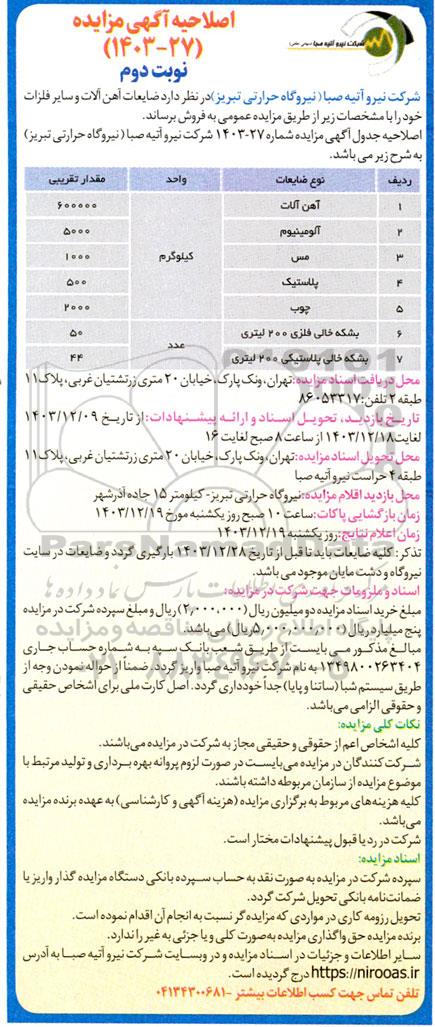 اصلاحیه آگهی مزایده
(۱۴۰۳-۲۷)
نوبت دوم
شرکت نیرو آتیه صبا (سهامی خاص)
شرکت نیرو آتیه صبا ( نیروگاه حرارتی تبریز) در نظر دارد ضایعات آهن آلات و سایر فلزات
خود را با مشخصات زیر از طریق مزایده عمومی به فروش برساند.
اصلاحیه جدول آگهی مزایده شماره ۲۷-۱۴۰۳ شرکت نیرو آتیه صبا ( نیروگاه حرارتی تبریز)
به شرح زیر می باشد.
ردیف نوع ضایعات واحد مقدار تقریبی
۱ آهن آلات کیلوگرم ۶۰۰۰۰۰
۲ آلومینیوم ۵۰۰۰
۳ مس ۱۰۰۰
۴ پلاستیک ۵۰۰
۵ چوب ۲۰۰۰
۶ بشکه خالی فلزی ۲۰۰ لیتری عدد ۵۰
۷ بشکه خالی پلاستیکی ۲۰۰ لیتری ۴۴
محل دریافت اسناد مزایده: تهران، ونک پارک، خیابان ۲۰ متری زرتشتیان غربی، پلاک ۱۱
طبقه ۲ تلفن: ۸۶۰۵۳۳۱۷
تاریخ بازدید، تحویل اسناد و ارائه پیشنهادات: از تاریخ ۱۴۰۳/۱۲/۰۹
لغایت ۱۴۰۳/۱۲/۱۸ از ساعت ۸ صبح لغایت ۱۶
محل تحویل اسناد مزایده: تهران، ونک پارک، خیابان ۲۰ متری زرتشتیان غربی، پلاک ۱۱
طبقه ۴ حراست نیرو آتیه صبا
محل بازدید اقلام مزایده: نیروگاه حرارتی تبریز- کیلومتر ۱۵ جاده آذرشهر
زمان بازگشایی پاکات: ساعت ۱۰ صبح روز یکشنبه مورخ ۱۴۰۳/۱۲/۱۹
زمان اعلام نتایج: روز یکشنبه ۱۴۰۳/۱۲/۱۹
تذکر: کلیه ضایعات باید تا قبل از تاریخ ۱۴۰۳/۱۲/۲۸ بارگیری گردد و ضایعات در سایت
نیروگاه و دشت مایان موجود می باشد.
اسناد و ملزومات جهت شرکت در مزایده:
مبلغ خرید اسناد مزایده دو میلیون ریال (۲,۰۰۰,۰۰۰) ریال و مبلغ سپرده شرکت در مزایده
پنج میلیارد ریال (۵,۰۰۰,۰۰۰,۰۰۰ ریال) می باشد.
مبالغ مذکور می بایست از طریق شعب بانک سپه به شماره حساب جاری
۱۳۴۹۸۰۰۲۶۳۴۰۴ به نام شرکت نیرو آتیه صبا واریز گردد. ضمناً از حواله نمودن وجه از
طریق سیستم شبا (ساتنا و پایا) جداً خودداری گردد. اصل کارت ملی برای اشخاص حقیقی
و حقوقی الزامی می باشد.
نکات کلی مزایده:
کلیه اشخاص اعم از حقوقی و حقیقی مجاز به شرکت در مزایده می باشند.
شرکت کنندگان در مزایده می بایست در صورت لزوم پروانه بهره برداری و تولید مرتبط با
موضوع مزایده از سازمان مربوطه داشته باشند.
کلیه هزینه های مربوط به برگزاری مزایده (هزینه آگهی و کارشناسی) به عهده برنده مزایده
می باشد.
شرکت در رد یا قبول پیشنهادات مختار است.
اسناد مزایده:
سپرده شرکت در مزایده به صورت نقد به حساب سپرده بانکی دستگاه مزایده گذار واریز یا
ضمانت نامه بانکی تحویل شرکت گردد.
تحویل رزومه کاری در مواردی که مزایده گر نسبت به انجام آن اقدام نموده است.
برنده مزایده حق واگذاری مزایده به صورت کلی و یا جزئی به غیر را ندارد.
سایر اطلاعات و جزئیات در اسناد مزایده و در وبسایت شرکت نیرو آتیه صبا به آدرس
https://nirooas.ir درج گردیده است.
تلفن تماس جهت کسب اطلاعات بیشتر -۰۴۱۳۴۳۰۰۶۸۱